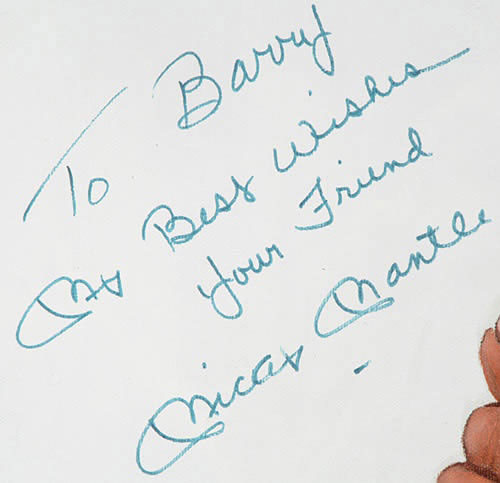 To Barry
My Best Wishes
Your Friend
Mickey Mantle